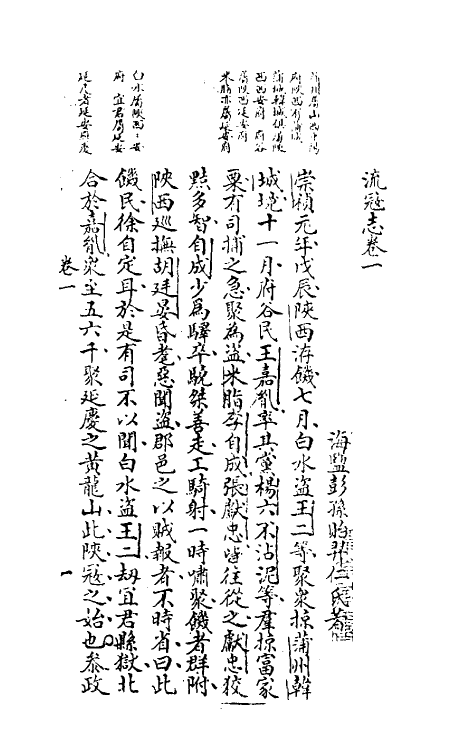 流寇志卷一
海鹽彭孫貽羿仁氏著
崇禎元年戊辰陝西洊饑七月白水盜王二等聚衆掠蒲州韓
城境十一月府谷民王嘉胤率其黨楊六不沾泥等羣掠富家
粟有司捕之急聚為盜米脂李自成張獻忠皆往從之獻忠狡
黠多智自成少為驛卒驍桀善走工騎射一時嘯聚饑者群附
陝西巡撫胡廷晏昏耄惡聞盜郡邑之以賊報者不時省曰此
饑民徐自定耳於是有司不以聞白水盜王二劫宜君縣獄北
合於嘉胤衆至五六千聚延慶之黃龍山此陝寇之始也叅政
卷一
一
蒲州屬山西平陽
府陝西有蒲城
蒲城韓城俱屬陝
西西安府 府谷
屬陝西延安府
米脂亦屬延安府
白水屬陝西西安
府 宜君屬延安
延慶者延安府慶